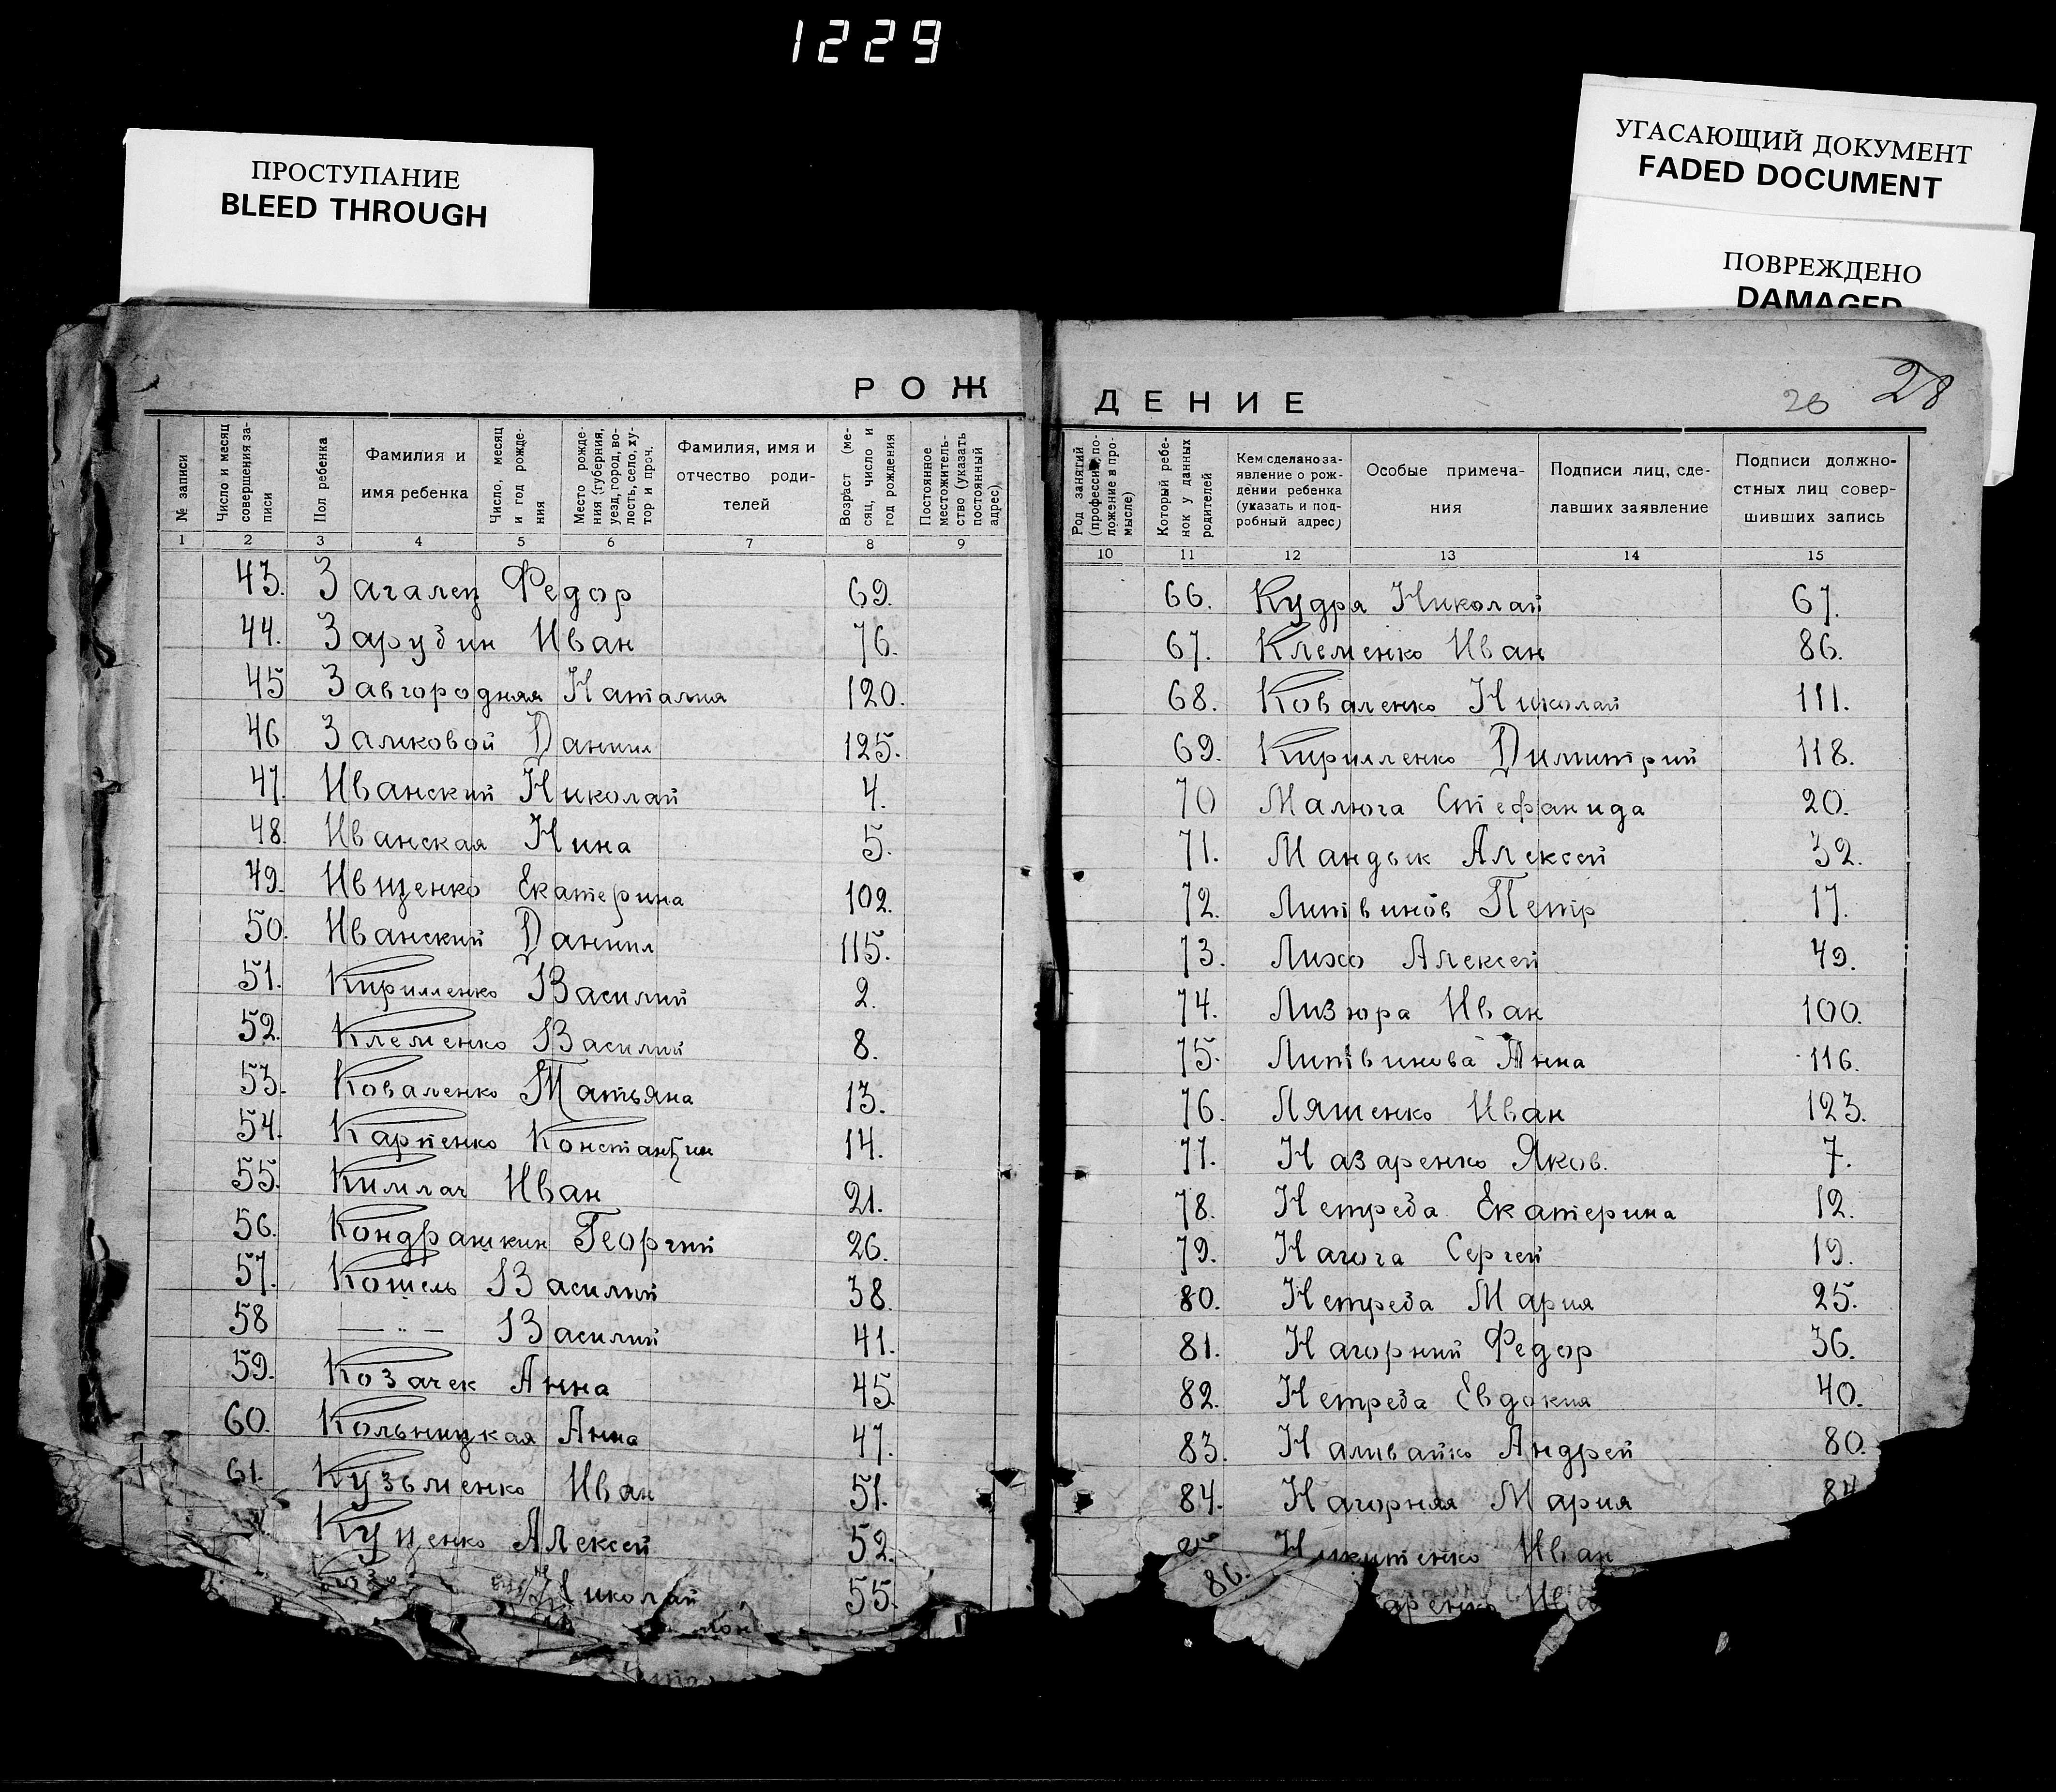 1229
ПРОСТУПАНИЕ
BLEED THROUGH
УГАСАЮЩИЙ ДОКУМЕНТ
FADED DOCUMENT
ПОВРЕЖДЕНО
DAMAGED
РОЖ
№ записи
Число и месяц совершения записи
Пол ребенка
Фамилия и
имя ребенка
Число, месяц
и год рожде-
ния
Место рожде-
ния (губерния,
уезд, город, во-
лость, село, ху-
тор и проч.
Фамилия, имя и
отчество роди-
телей
Возраст (ме-
сяц, число и
год рождения
Постоянное
местожитель-
ство (указать
постоянный
адрес)
1 2 3 4 5 6 7 8 9
43. Загалец Федор 69.
44. Зарубин Иван 76.
45 Завгородняя Наталия 120.
46 Замковой Даниил 125.
47. Иванский Николай 4.
48. Иванская Нина 5.
49. Иващенко Екатерина 102.
50. Иванский Даниил 115.
51. Кирилленко Василий 2.
52. Клеменко Василий 8.
53. Коваленко Татьяна 13.
54. Карпенко Константин 14.
55. Кимлач Иван 21.
56. Кондрашкин Георгий 26.
57. Кошель Василий 38.
58 — " — Василий 41.
59. Козачек Анна 45
60. Кольницкая Анна 47.
61. Кузьменко Иван 51.
Куценко Алексей 52.
Николай 55.
ДЕНИЕ
26 28
Род занятий
(профессия, по-
ложение в про-
мысле)
Который ребе-
нок у данных
родителей
Кем сделано за-
явление о рож-
дении ребенка
(указать и под-
робный адрес)
Особые примеча-
ния
Подписи лиц, сде-
лавших заявление
Подписи должно-
стных лиц совер-
шивших запись
10 11 12 13 14 15
66. Кудря Николай 67.
67. Клеменко Иван 86.
68. Коваленко Николай 111.
69. Кирилленко Димитрий 118.
70 Малюга Стефанида 20.
71. Мандык Алексей 32.
72. Литвинов Петр 17.
73. Лихо Алексей 49.
74. Лизюра Иван 100.
75. Литвинова Анна 116.
76. Ляшенко Иван 123.
77. Назаренко Яков. 7.
78. Нетреба Екатерина 12.
79. Нагога Сергей 19.
80. Нетреба Мария 25.
81. Нагорний Федор 36.
82. Нетреба Евдокия 40.
83. Наливайко Андрей 80.
84. Нагорняя Мария 84
Никитенко Иван
86.